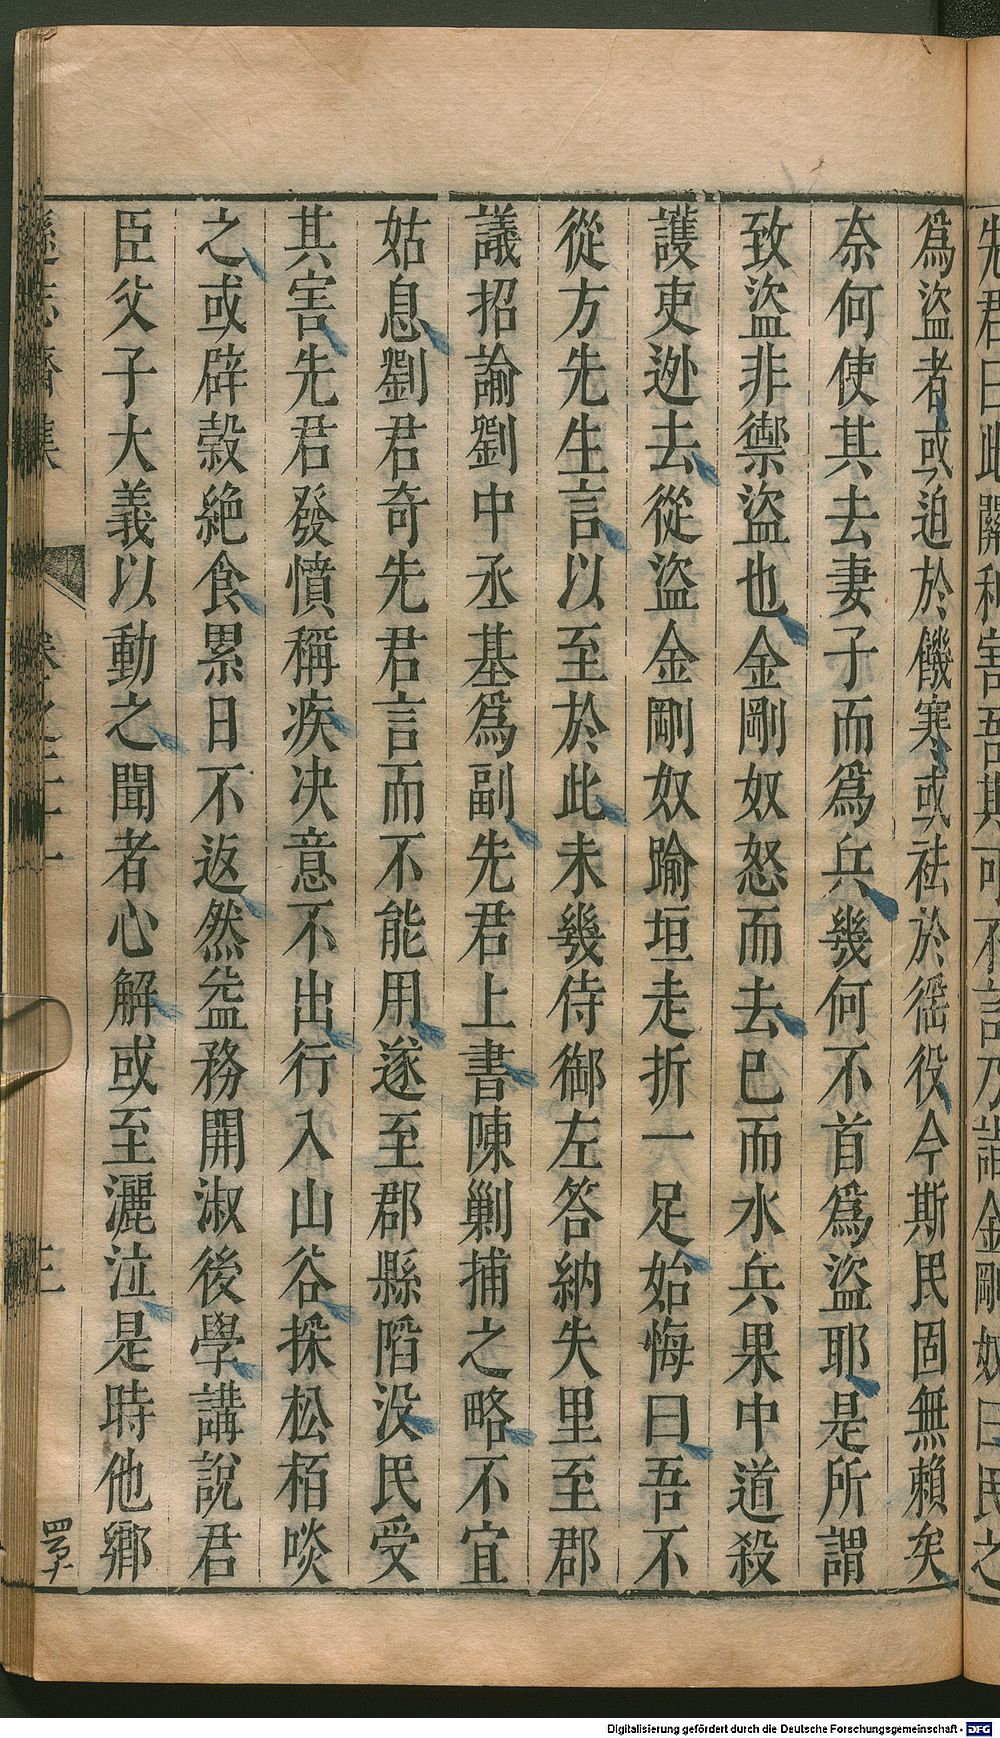 先君曰此關利害吾其可不言乃詣金剛奴曰民之
爲盜者或迫於饑寒或祛於徭役今斯民固無賴矣
奈何使其去妻子而爲兵幾何不首爲盜耶是所謂
致盜非禦盜也金剛奴怒而去已而水兵果中道殺
護吏迯去從盜金剛奴踰垣走折一足始悔曰吾不
從方先生言以至於此未幾侍御左答納失里至郡
議招諭劉中丞基爲副先君上書陳剿捕之略不宜
姑息劉君奇先君言而不能用遂至郡縣陷没民受
其害先君發憤稱疾决意不出行入山谷採松栢啖
之或辟穀絶食累日不返然益務開淑後學講説君
臣父子大義以動之聞者心解或至灑泣是時他鄉
遜志齋集
卷之二十一
三
Digitalisierung gefördert durch die Deutsche Forschungsgemeinschaft - DFG